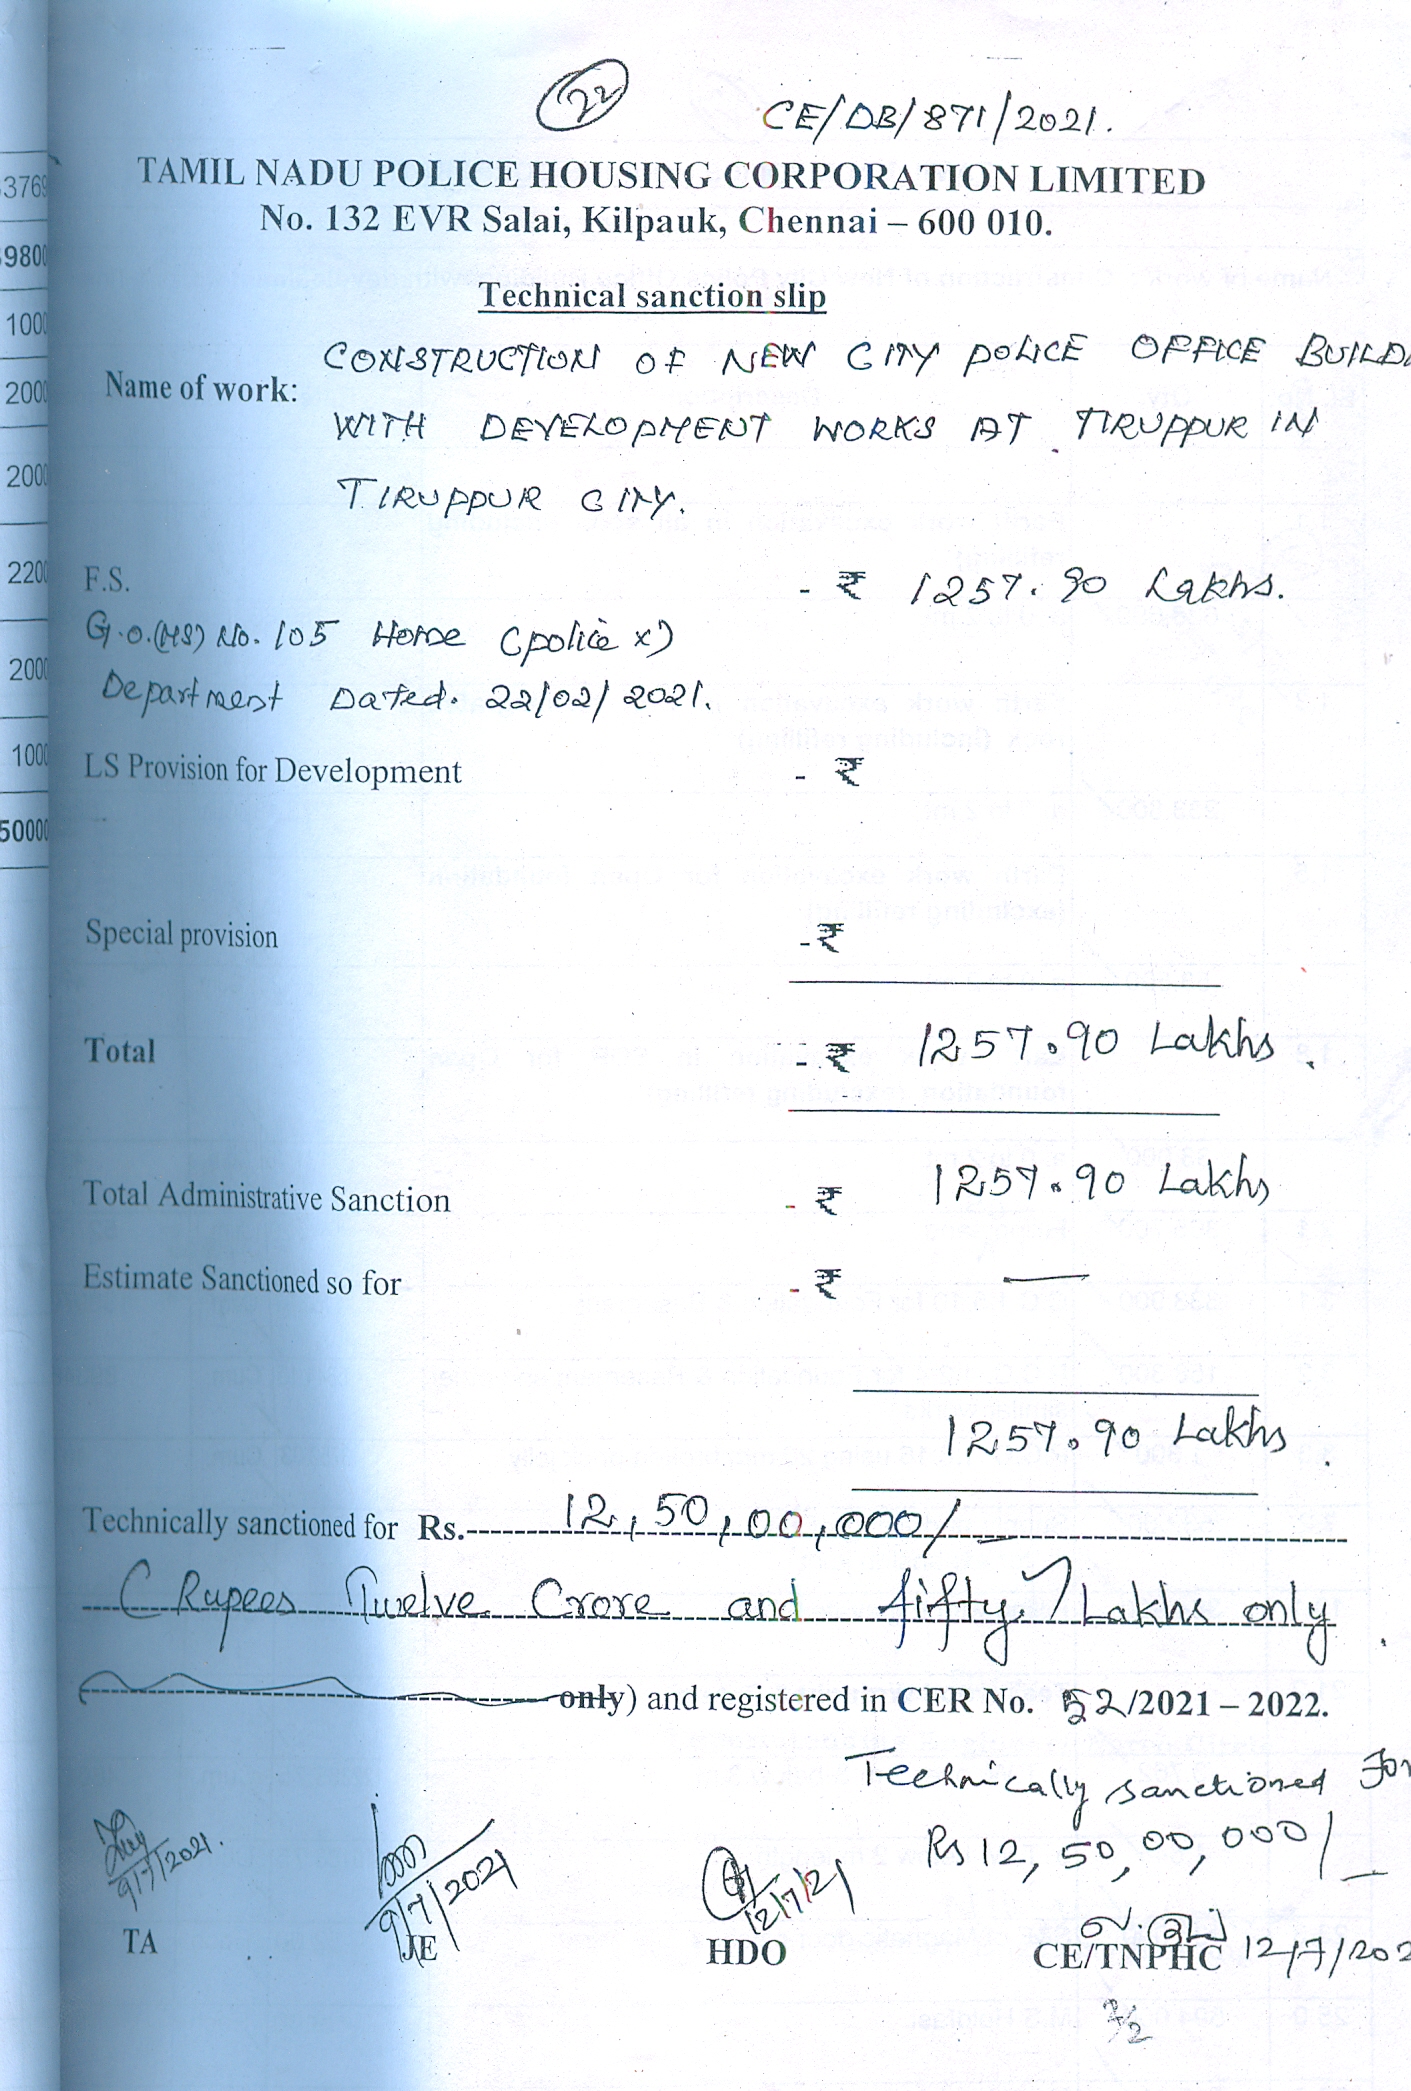 22
CE/DB/871/2021.
TAMIL NADU POLICE HOUSING CORPORATION LIMITED
No. 132 EVR Salai, Kilpauk, Chennai – 600 010.
Technical sanction slip
Name of work: CONSTRUCTION OF NEW CITY POLICE OFFICE BUILD
WITH DEVELOPMENT WORKS AT TIRUPPUR IN
TIRUPPUR CITY.
F.S. - ₹ 1257.90 Lakhs.
G.O.(MS) No. 105 Home (police x)
Department Dated. 22/02/2021.
LS Provision for Development - ₹
Special provision - ₹
Total - ₹ 1257.90 Lakhs.
Total Administrative Sanction - ₹ 1257.90 Lakhs
Estimate Sanctioned so for - ₹ —
1257.90 Lakhs.
Technically sanctioned for Rs. 12,50,00,000/-
(Rupees Twelve Crore and fifty Lakhs only.
only) and registered in CER No. 52/2021 – 2022.
Technically sanctioned For
Rs 12,50,00,000/-
9/7/2021. 9/7/2021 12/7/21
TA JE HDO CE/TNPHC 12/7/202
3769
9800
1000
2000
2000
2200
2000
1000
50000